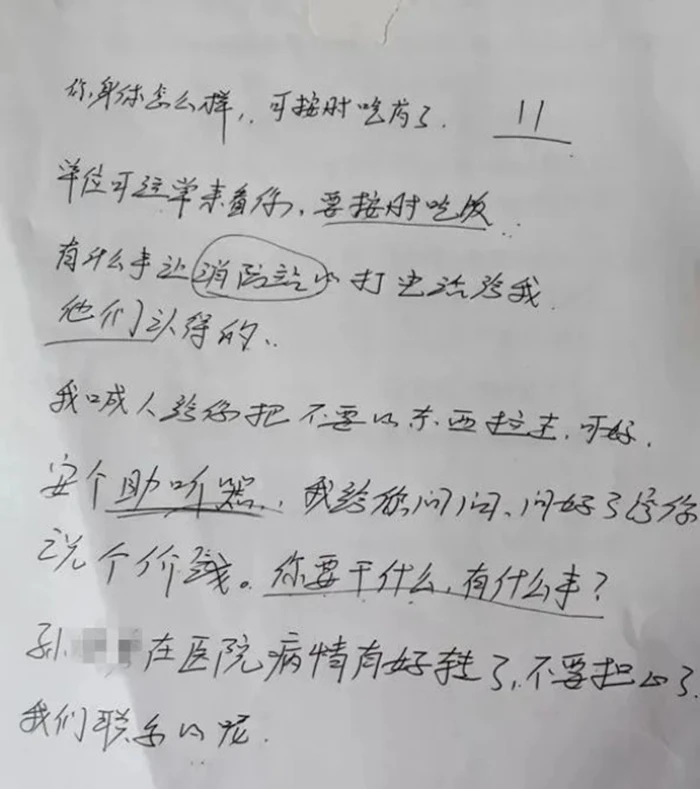 你身体怎么样,可按时吃药了. 11
单位可经常来看你,要按时吃饭
有什么事让消防站的打电话给我.
他们认得的、
我喊人给你把不要的东西拉走,可好.
安个助听器,我给你问问、问好了给你
说个价钱。你要干什么,有什么事?
孙 在医院病情有好转了,不要担心了.
我们联系的呢.